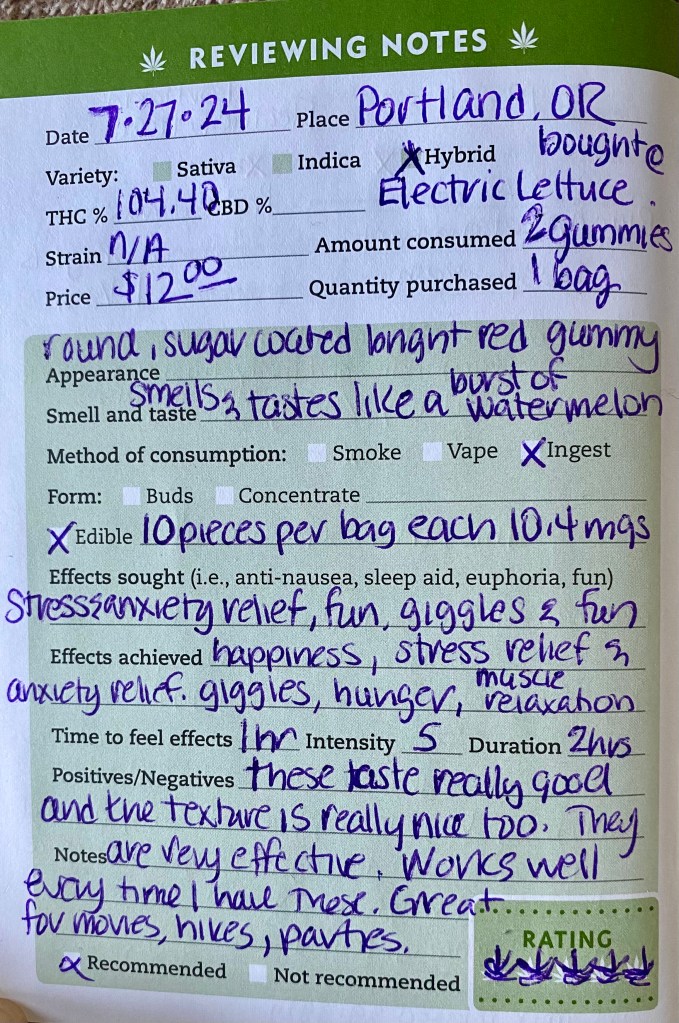 REVIEWING NOTES
Date 7.27.24 Place Portland, OR
Variety: Sativa Indica X Hybrid bought @
THC % 104.40 CBD % Electric Lettuce.
Strain N/A Amount consumed 2 gummies
Price $12.00 Quantity purchased 1 bag
round, sugar coated bright red gummy
Appearance
Smell and taste smells & tastes like a burst of watermelon
Method of consumption: Smoke Vape X Ingest
Form: Buds Concentrate
X Edible 10 pieces per bag each 10.4 mgs
Effects sought (i.e., anti-nausea, sleep aid, euphoria, fun)
Stress & anxiety relief, fun, giggles & fun
Effects achieved happiness, stress relief &
anxiety relief. giggles, hunger, muscle relaxation
Time to feel effects 1hr Intensity 5 Duration 2hrs
Positives/Negatives these taste really good
and the texture is really nice too. They
Notes are very effective. Works well
every time I have these. Great
for movies, hikes, parties.
RATING
X Recommended Not recommended